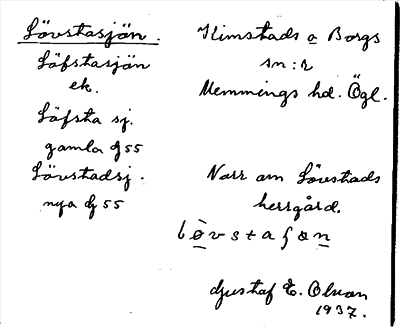 Lövstasjön.
Löfstasjön
ek.
Löfsta sj.
gamla G 55
Lövstadsj.
nya G 55
Kimstads o Borgs
sn:r
Memmings hd. Ögl.
Norr om Lövstads
herrgård.
Gustaf E. Olson
1937.